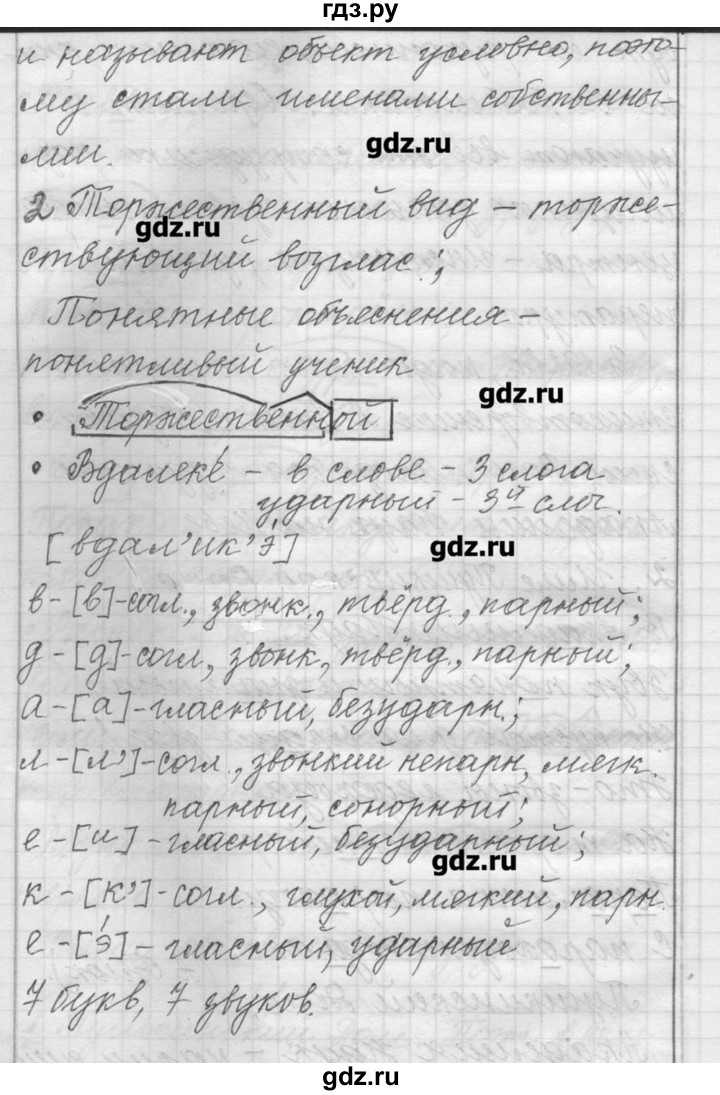 гдз.ру
и называют объект условно, поэто-
му стали именами собственны-
ми.
gdz.ru
2 Торжественный вид – торже-
gdz.ru
ствующий возглас;
Понятные объяснения –
понятливый ученик
gdz.ru
• Торжественной
• Вдалеке́ – в слове – 3 слога
ударный – 3й слог.
[вдал’ик’э́]
gdz.ru
в – [в] – согл., звонк., твёрд., парный;
д – [д] – согл, звонк, твёрд., парный;
а – [а] – гласный, безударн.;
л – [л’] – согл., звонкий непарн, мягк.
парный, сонорный;
е – [и] – гласный, безударный;
gdz.ru
к – [к’] – согл., глухой, мягкий, парн.
е – [э́] – гласный, ударный
7 букв, 7 звуков.
gdz.ru